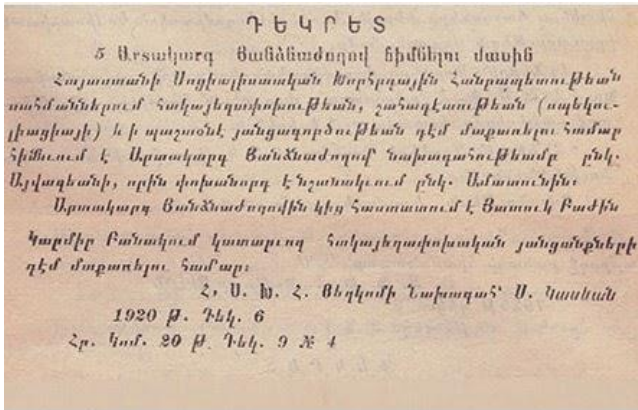 ԴԵԿՐԵՏ
5 Արտակարգ Յանձնաժողով հիմնելու մասին
Հայաստանի Սոցիալիստական Խորհրդային Հանրապետութեան
սահմաններում հակայեղափոխութեան, շահագէտութեան (սպեկու-
լիացիայի) և ի պաշտօնէ յանցագործութեան դէմ մաքառելու համար
հիմնւում է Արտակարգ Յանձնաժողով՝ նախագահութեամբ ընկ.
Այվազեանի, որին փոխանորդ է նշանակւում ընկ. Ամատունին։
Արտակարգ Յանձնաժողովին կից հաստատւում է Յատուկ Բաժին
Կարմիր Բանակում կատարւող հակայեղափոխական յանցանքների
դէմ մաքառելու համար։
Հ. Ս. Խ. Հ. Յեղկոմի Նախագահ՝ Ս. Կասեան
1920 Թ. Դեկ. 6
Հր. Կոմ. 20 թ. Դեկ. 9 № 4